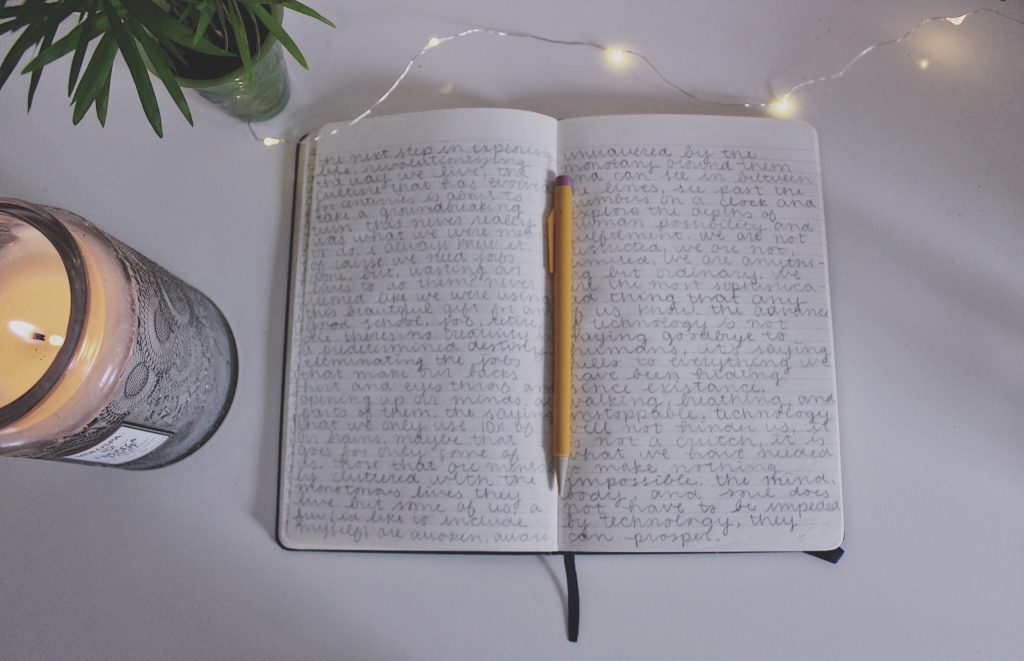 the next step in exploring
life, revolutionizing
the way we live, the
culture that has evolved
for centuries is about to
take a groundbreaking
turn this never really
was what we were
to do, i always knew it.
of course we need jobs
done, but, wasting our
lives to do them never
seemed like we were using
this beautiful gift for
good school, job, retire,
die. theres no creativity in
a predetermined destiny
eliminating the jobs
that make our backs
hurt and eyes throb, and
opening up our minds,
parts of them. the saying
that we only use 10% of
our brains, maybe that
goes for only some of
us. those that are
cluttered with the
monotonous lives they
live but some of us, a
few, id like to include
myself, are awoken. aware
unwavered by the
monotony around them
and can see in between
the lines, see past the
numbers on a clock and
explore the depths of
human possibility and
fulfillment. we are not
restricted, we are not
we are anythi-
ng but ordinary. we
are the most sophistica-
ed thing that any
of us know. the advance
of technology is not
saying goodbye to
humans, it's saying
to everything we
have been hiding
since existance.
walking, breathing, and
unstoppable. technology
will not hinder us, it
is not a crutch, it is
what we have needed
to make nothing
impossible. the mind,
body, and soul does
not have to be impeded
by technology, they
can prosper.
VOLUSPA